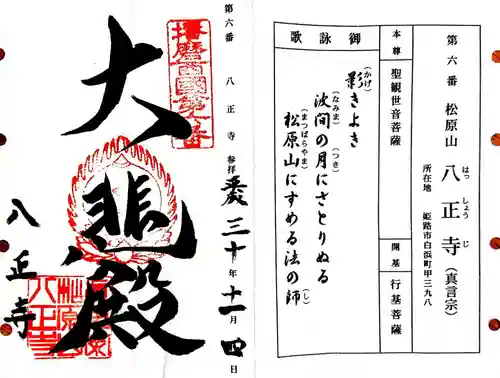 第六番 松原山 八正寺(真言宗)
はっ しょう じ
所在地 姫路市白浜町甲三九八
本尊 聖観世音菩薩
開基 行基菩薩
御詠歌
影きよき
(かげ)
波間の月にさとりぬる
(なみま) (つき)
松原山にすめる法の師
(まつばらやま) (し)
第六番 八正寺 参拝 平成三十年十一月四日
播磨西國第六番
大悲殿
八正寺